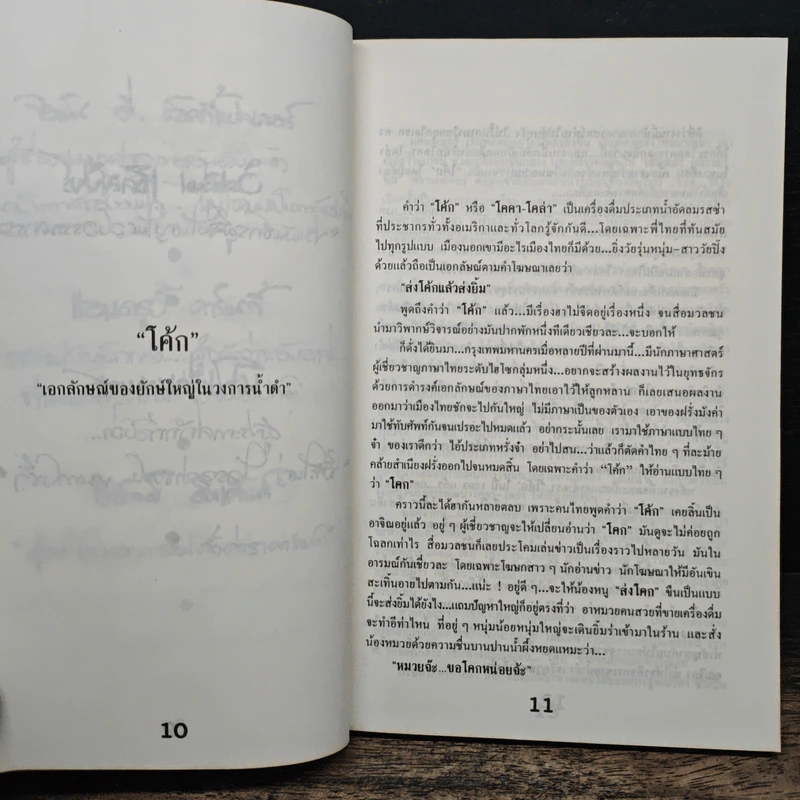 “โค้ก”
“เอกลักษณ์ของยักษ์ใหญ่ในวงการน้ำดำ”
10
คำว่า “โค้ก” หรือ “โคคา-โคล่า” เป็นเครื่องดื่มประเภทน้ำอัดลมรสซ่า
ที่ประชากรทั่วทั้งอเมริกาและทั่วโลกรู้จักกันดี...โดยเฉพาะพี่ไทยที่ทันสมัย
ไปทุกรูปแบบ เมืองนอกเขามีอะไรเมืองไทยก็มีด้วย...ยิ่งวัยรุ่นหนุ่ม-สาววัยปิ๊ง
ด้วยแล้วถือเป็นเอกลักษ์ตามคำโฆษณาเลยว่า
“ส่งโค้กแล้วส่งยิ้ม”
พูดถึงคำว่า “โค้ก” แล้ว...มีเรื่องฮาไม่จืดอยู่เรื่องหนึ่ง จนสื่อมวลชน
นำมาวิพากษ์วิจารณ์อย่างมันปากพักหนึ่งทีเดียวเชียวละ...จะบอกให้
ก็ดั่งได้ยินมา...กรุงเทพมหานครเมื่อหลายปีที่ผ่านมานี้...มีนักภาษาศาสตร์
ผู้เชี่ยวชาญภาษาไทยระดับไฮโซกลุ่มหนึ่ง...อยากจะสร้างผลงานไว้ในยุทธจักร
ด้วยการดำรงค์เอกลักษณ์ของภาษาไทยเอาไว้ให้ลูกหลาน ก็เลยเสนอผลงาน
ออกมาว่าเมืองไทยชักจะไปกันใหญ่ ไม่มีภาษาเป็นของตัวเอง เอาของฝรั่งมังค่า
มาใช้ทับศัพท์กันจนเปรอะไปหมดแล้ว อย่ากระนั้นเลย เรามาใช้ภาษาแบบไทย ๆ
จ๋า ของเราดีกว่า ไอ้ประเภทหรั่งจ๋า อย่าไปสน...ว่าแล้วก็ตัดคำไทย ๆ ที่ละม้าย
คล้ายสำเนียงฝรั่งออกไปจนหมดสิ้น โดยเฉพาะคำว่า “โค้ก” ให้อ่านแบบไทย ๆ
ว่า “โคก”
คราวนี้ละได้ฮากันหลายตลบ เพราะคนไทยพูดคำว่า “โค้ก” เคยลิ้นเป็น
อาจิณอยู่แล้ว อยู่ ๆ ผู้เชี่ยวชาญจะให้เปลี่ยนอ่านว่า “โคก” มันดูจะไม่ค่อยถูก
โฉลกเท่าไร สื่อมวลชนก็เลยประโคมเล่นข่าวเป็นเรื่องราวไปหลายวัน มันใน
อารมณ์กันเชียวละ โดยเฉพาะโฆษกสาว ๆ นักอ่านข่าว นักโฆษณาให้มีอันเขิน
สะเทิ้นอายไปตามกัน...แน่ะ ! อยู่ดี ๆ...จะให้น้องหนู “ส่งโคก” ขืนเป็นแบบ
นี้จะส่งยิ้มได้ยังไง...แถมปัญหาใหญ่ก็อยู่ตรงที่ว่า อาหมวยคนสวยที่ขายเครื่องดื่ม
จะทำอีท่าไหน ที่อยู่ ๆ หนุ่มน้อยหนุ่มใหญ่จะเดินยิ้มร่าเข้ามาในร้าน และสั่ง
น้องหมวยด้วยความชื่นบานปานน้ำผึ้งหยดแหมะว่า...
“หมวยจ๊ะ...ขอโคกหน่อยจ้ะ”
11